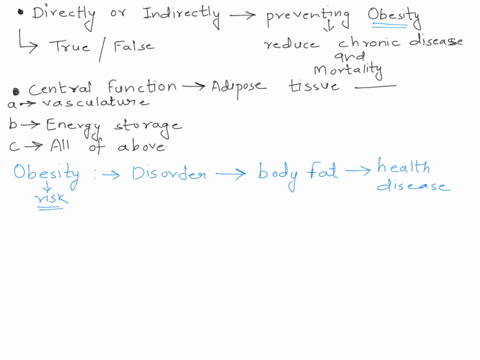 • Directly or Indirectly → preventing Obesity
↳ True / False reduce chronic disease
and
Mortality
• Central function → Adipose tissue —
a → vasculature
b → Energy storage
c → All of above
Obesity : → Disorder → body fat → health
disease
↓
risk